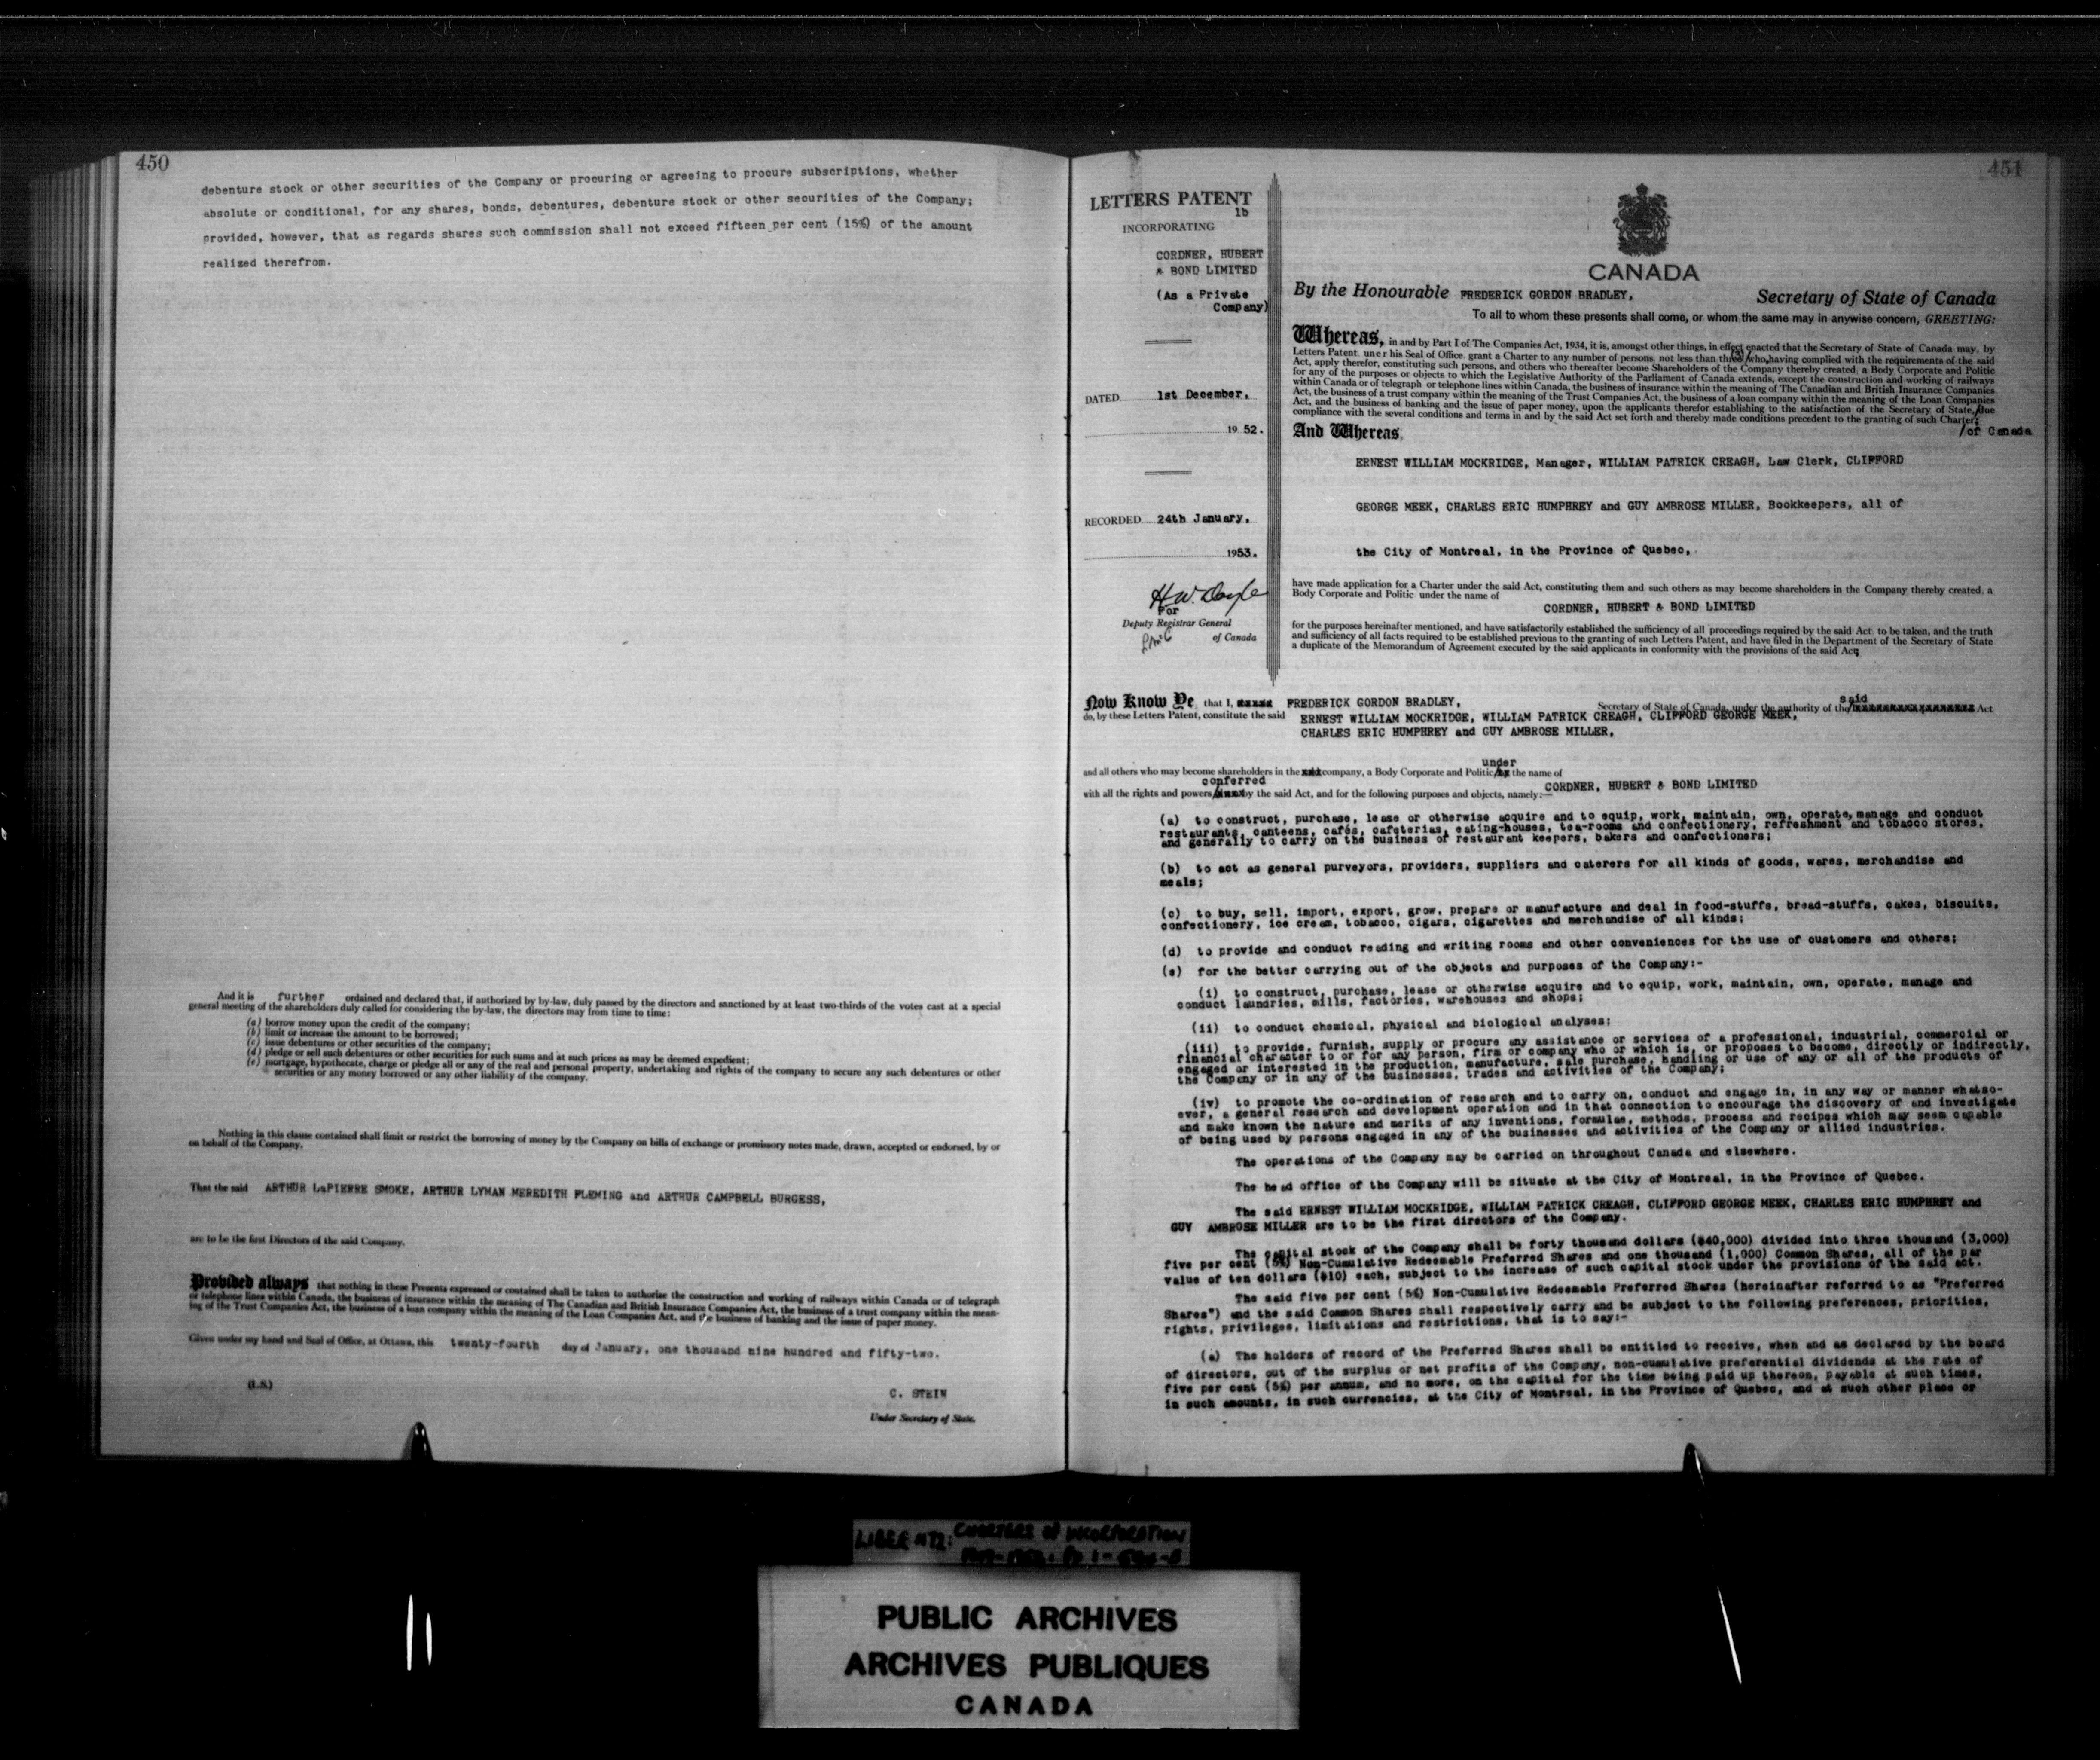 450
debenture stock or other securities of the Company or procuring or agreeing to procure subscriptions, whether
absolute or conditional, for any shares, bonds, debentures, debenture stock or other securities of the Company;
provided, however, that as regards shares such commission shall not exceed fifteen per cent (15%) of the amount
realized therefrom.
And it is further ordained and declared that, if authorized by by-law, duly passed by the directors and sanctioned by at least two-thirds of the votes cast at a special
general meeting of the shareholders duly called for considering the by-law, the directors may from time to time:
(a) borrow money upon the credit of the company;
(b) limit or increase the amount to be borrowed;
(c) issue debentures or other securities of the company;
(d) pledge or sell such debentures or other securities for such sums and at such prices as may be deemed expedient;
(e) mortgage, hypothecate, charge or pledge all or any of the real and personal property, undertaking and rights of the company to secure any such debentures or other
securities or any money borrowed or any other liability of the company.
Nothing in this clause contained shall limit or restrict the borrowing of money by the Company on bills of exchange or promissory notes made, drawn, accepted or endorsed, by or
on behalf of the Company.
That the said ARTHUR LaPIERRE SMOKE, ARTHUR LYMAN MEREDITH FLEMING and ARTHUR CAMPBELL BURGESS,
are to be the first Directors of the said Company.
Provided always that nothing in these Presents expressed or contained shall be taken to authorize the construction and working of railways within Canada or of telegraph
or telephone lines within Canada, the business of insurance within the meaning of The Canadian and British Insurance Companies Act, the business of a trust company within the mean-
ing of the Trust Companies Act, the business of a loan company within the meaning of the Loan Companies Act, and the business of banking and the issue of paper money.
Given under my hand and Seal of Office, at Ottawa, this twenty-fourth day of January, one thousand nine hundred and fifty-two.
(L.S.)
C. STEIN
Under Secretary of State.
451
LETTERS PATENT
1b
INCORPORATING
CORDNER, HUBERT
& BOND LIMITED
(As a Private
Company)
DATED 1st December,
1952.
RECORDED 24th January,
1953.
H W. Doyle
For
Deputy Registrar General
of Canada
CANADA
By the Honourable FREDERICK GORDON BRADLEY, Secretary of State of Canada
To all to whom these presents shall come, or whom the same may in anywise concern, GREETING:
Whereas, in and by Part I of The Companies Act, 1934, it is, amongst other things, in effect enacted that the Secretary of State of Canada may, by
Letters Patent, une r his Seal of Office, grant a Charter to any number of persons, not less than three (3) who, having complied with the requirements of the said
Act, apply therefor, constituting such persons, and others who thereafter become Shareholders of the Company thereby created, a Body Corporate and Politic
for any of the purposes or objects to which the Legislative Authority of the Parliament of Canada extends, except the construction and working of railways
within Canada or of telegraph or telephone lines within Canada, the business of insurance within the meaning of The Canadian and British Insurance Companies
Act, the business of a trust company within the meaning of the Trust Companies Act, the business of a loan company within the meaning of the Loan Companies
Act, and the business of banking and the issue of paper money, upon the applicants therefor establishing to the satisfaction of the Secretary of State,/due
compliance with the several conditions and terms in and by the said Act set forth and thereby made conditions precedent to the granting of such Charter;
/of Canada
And Whereas,
ERNEST WILLIAM MOCKRIDGE, Manager, WILLIAM PATRICK CREAGH, Law Clerk, CLIFFORD
GEORGE MEEK, CHARLES ERIC HUMPHREY and GUY AMBROSE MILLER, Bookkeepers, all of
the City of Montreal, in the Province of Quebec,
have made application for a Charter under the said Act, constituting them and such others as may become shareholders in the Company thereby created, a
Body Corporate and Politic under the name of
CORDNER, HUBERT & BOND LIMITED
for the purposes hereinafter mentioned, and have satisfactorily established the sufficiency of all proceedings required by the said Act to be taken, and the truth
and sufficiency of all facts required to be established previous to the granting of such Letters Patent, and have filed in the Department of the Secretary of State
a duplicate of the Memorandum of Agreement executed by the said applicants in conformity with the provisions of the said Act;
Now Know Ye, that I, FREDERICK GORDON BRADLEY,
said
Secretary of State of Canada, under the authority of the Act
do, by these Letters Patent, constitute the said ERNEST WILLIAM MOCKRIDGE, WILLIAM PATRICK CREAGH, CLIFFORD GEORGE MEEK,
CHARLES ERIC HUMPHREY and GUY AMBROSE MILLER,
under
and all others who may become shareholders in the company, a Body Corporate and Politic, the name of
conferred
CORDNER, HUBERT & BOND LIMITED
with all the rights and powers by the said Act, and for the following purposes and objects, namely:—
(a) to construct, purchase, lease or otherwise acquire and to equip, work, maintain, own, operate, manage and conduct
restaurants, canteens, cafés, cafeterias, eating-houses, tea-rooms and confectionery, refreshment and tobacco stores,
and generally to carry on the business of restaurant keepers, bakers and confectioners;
(b) to act as general purveyors, providers, suppliers and caterers for all kinds of goods, wares, merchandise and
meals;
(c) to buy, sell, import, export, grow, prepare or manufacture and deal in food-stuffs, bread-stuffs, cakes, biscuits,
confectionery, ice cream, tobacco, cigars, cigarettes and merchandise of all kinds;
(d) to provide and conduct reading and writing rooms and other conveniences for the use of customers and others;
(e) for the better carrying out of the objects and purposes of the Company:-
(i) to construct, purchase, lease or otherwise acquire and to equip, work, maintain, own, operate, manage and
conduct laundries, mills, factories, warehouses and shops;
(ii) to conduct chemical, physical and biological analyses;
(iii) to provide, furnish, supply or procure any assistance or services of a professional, industrial, commercial or
financial character to or for any person, firm or company who or which is, or proposes to become, directly or indirectly,
engaged or interested in the production, manufacture, sale purchase, handling or use of any or all of the products of
the Company or in any of the businesses, trades and activities of the Company;
(iv) to promote the co-ordination of research and to carry on, conduct and engage in, in any way or manner whatso-
ever, a general research and development operation and in that connection to encourage the discovery of and investigate
and make known the nature and merits of any inventions, formulas, methods, process and recipes which may seem capable
of being used by persons engaged in any of the businesses and activities of the Company or allied industries.
The operations of the Company may be carried on throughout Canada and elsewhere.
The head office of the Company will be situate at the City of Montreal, in the Province of Quebec.
The said ERNEST WILLIAM MOCKRIDGE, WILLIAM PATRICK CREAGH, CLIFFORD GEORGE MEEK, CHARLES ERIC HUMPHREY and
GUY AMBROSE MILLER are to be the first directors of the Company.
The capital stock of the Company shall be forty thousand dollars ($40,000) divided into three thousand (3,000)
five per cent (5%) Non-Cumulative Redeemable Preferred Shares and one thousand (1,000) Common Shares, all of the par
value of ten dollars ($10) each, subject to the increase of such capital stock under the provisions of the said act.
The said five per cent (5%) Non-Cumulative Redeemable Preferred Shares (hereinafter referred to as "Preferred
Shares") and the said Common Shares shall respectively carry and be subject to the following preferences, priorities,
rights, privileges, limitations and restrictions, that is to say:-
(a) The holders of record of the Preferred Shares shall be entitled to receive, when and as declared by the board
of directors, out of the surplus or net profits of the Company, non-cumulative preferential dividends at the rate of
five per cent (5%) per annum, and no more, on the capital for the time being paid up thereon, payable at such times,
in such amounts, in such currencies, at the City of Montreal, in the Province of Quebec, and at such other place or
LIBER 472: CHARTERS OF INCORPORATION
PUBLIC ARCHIVES
ARCHIVES PUBLIQUES
CANADA